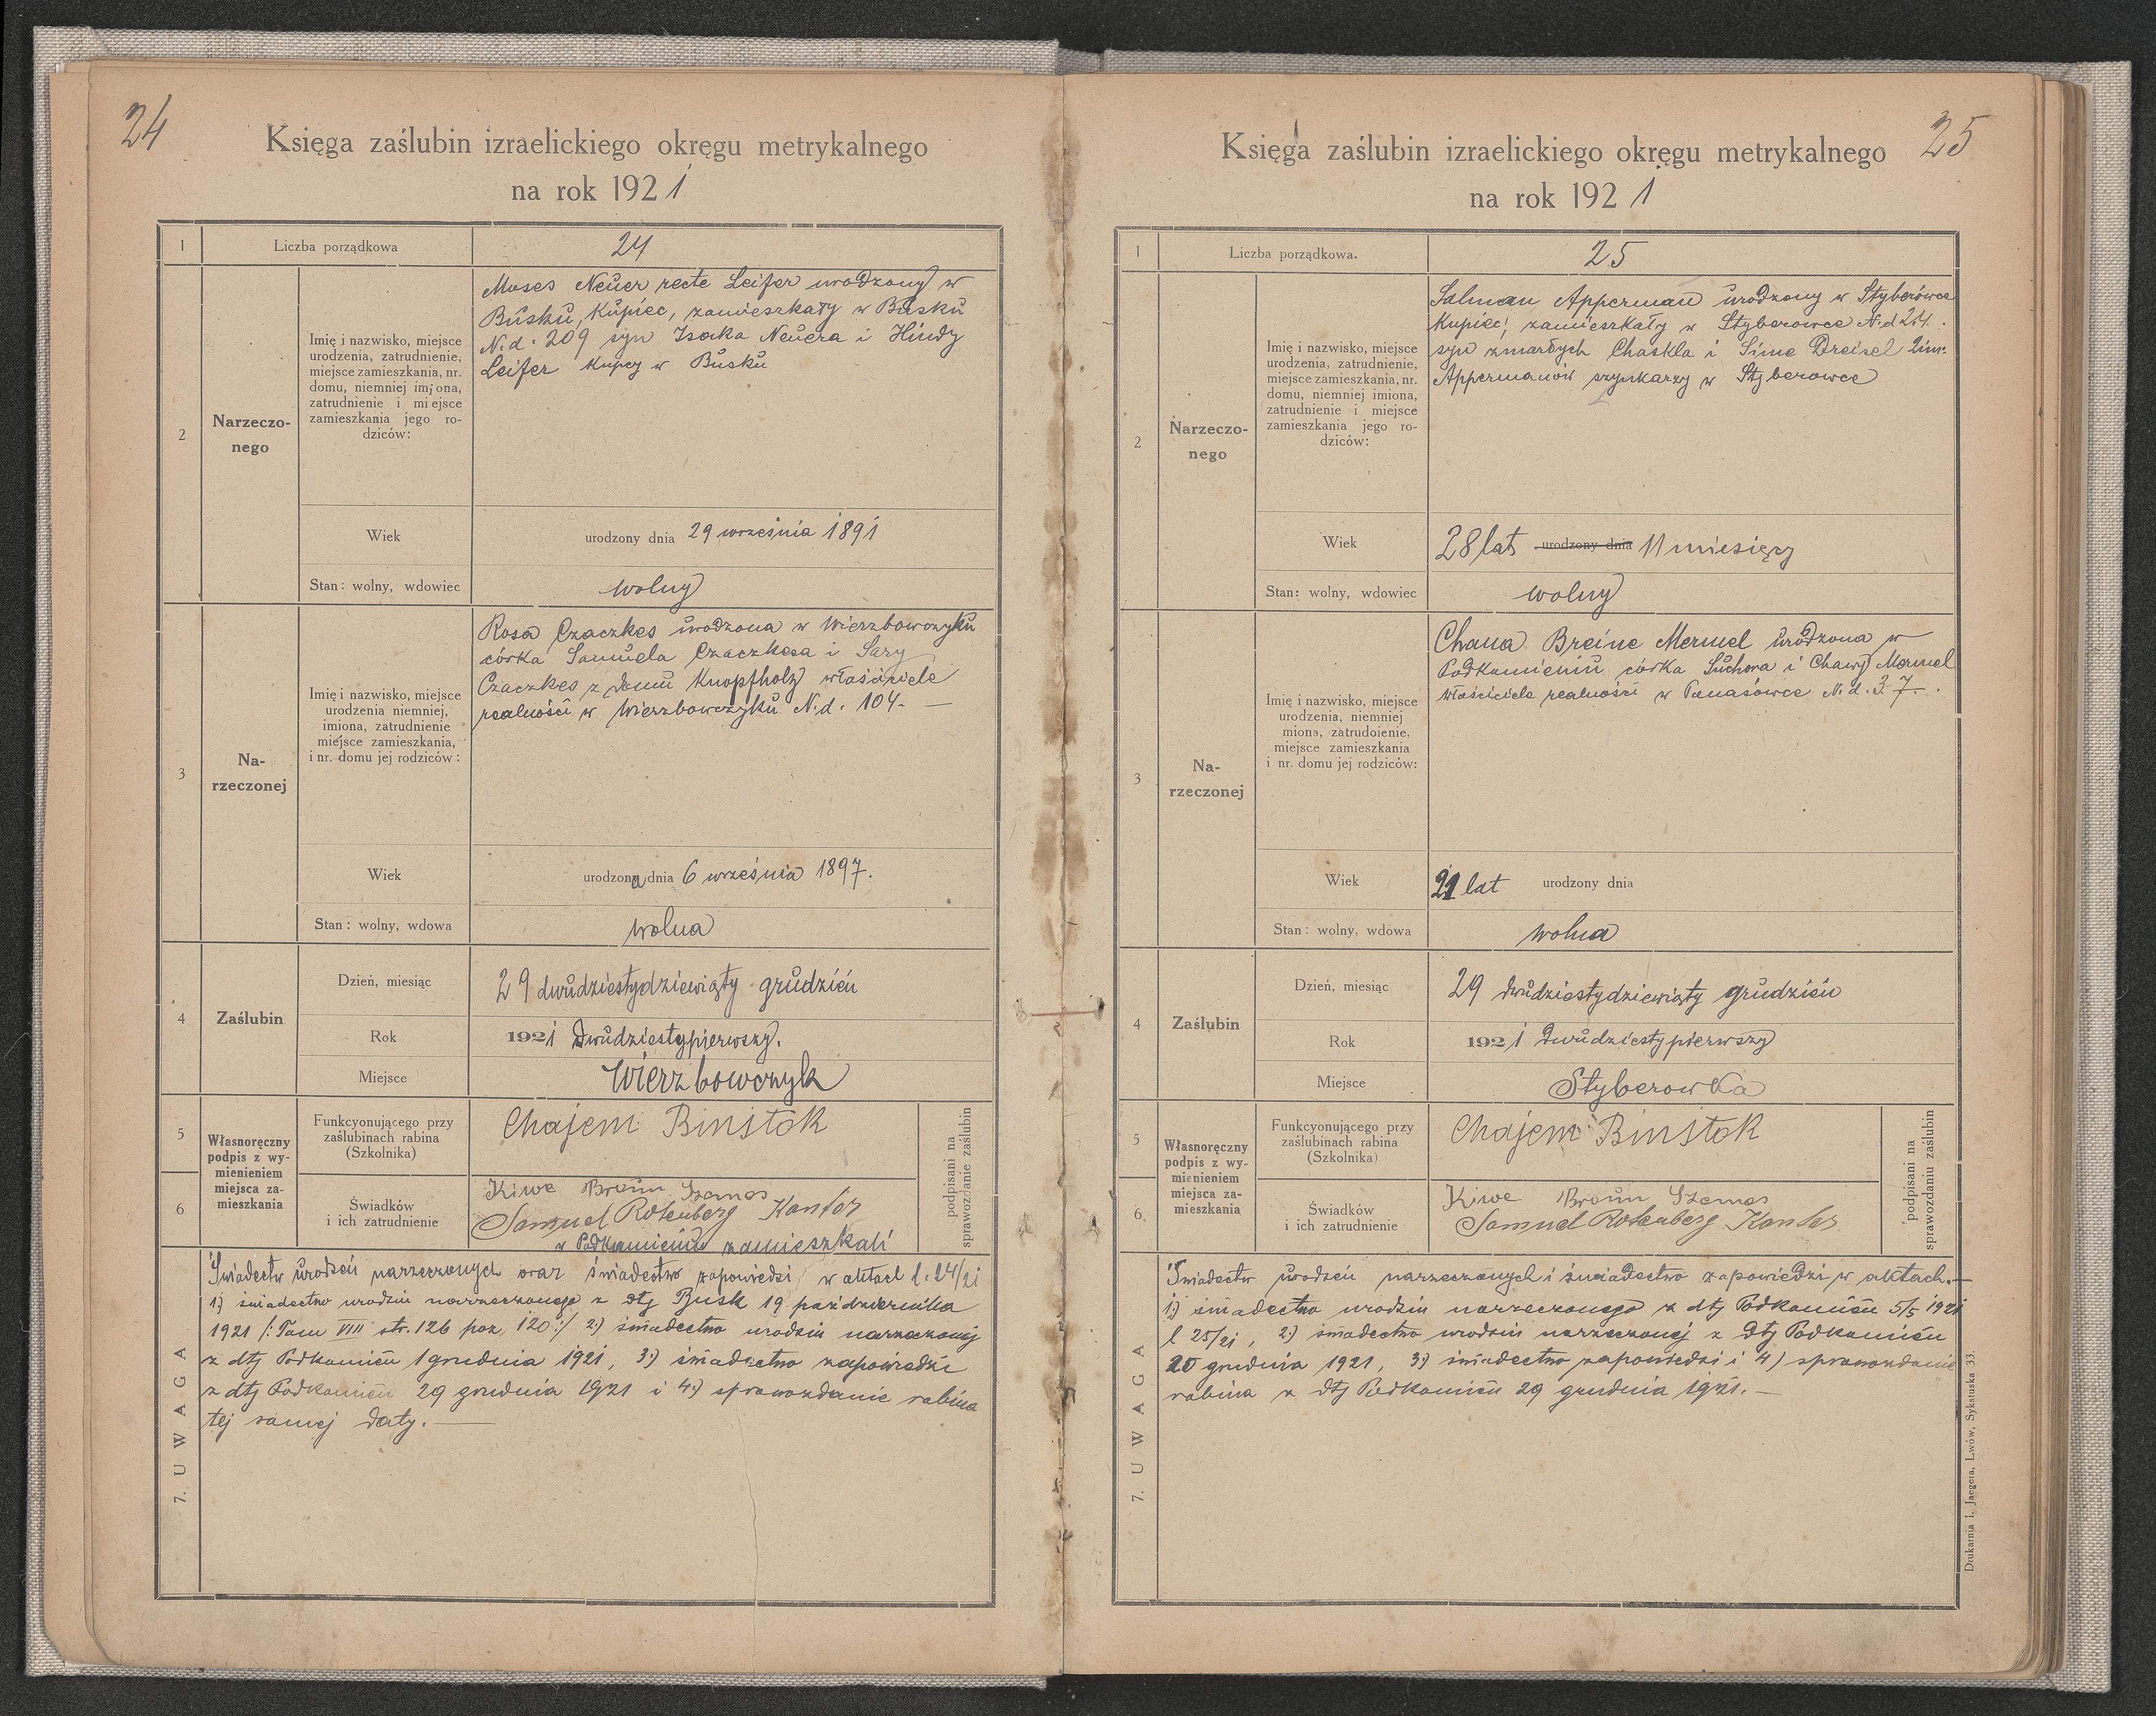 24
Księga zaślubin izraelickiego okręgu metrykalnego
na rok 1921
1
Liczba porządkowa
24
2
Narzeczo-
nego
Imię i nazwisko, miejsce
urodzenia, zatrudnienie,
miejsce zamieszkania, nr.
domu, niemniej imiona,
zatrudnienie i miejsce
zamieszkania jego ro-
dziców:
Moses Neuer recte Leifer urodzony w
Busku, Kupiec, zamieszkały w Busku
N.d. 209 syn Isaka Neuera i Hindy
Leifer Kupcy w Busku
Wiek
urodzony dnia 29 września 1891
Stan: wolny, wdowiec
wolny
3
Na-
rzeczonej
Imię i nazwisko, miejsce
urodzenia niemniej,
imiona, zatrudnienie
miejsce zamieszkania,
i nr. domu jej rodziców:
Rosa Czaczkes urodzona w Wierzbowczyku
córka Samuela Czaczkesa i Sary
Czaczkes z domu Knopfholz właściciele
realności w Wierzbowczyku N.d. 104. —
Wiek
urodzona dnia 6 września 1897.
Stan: wolny, wdowa
wolna
4
Zaślubin
Dzień, miesiąc
29 dwudziestydziewiąty grudzień
Rok
1921 Dwudziestypierwszy.
Miejsce
Wierzbowczyk
5
6
Własnoręczny
podpis z wy-
mienieniem
miejsca za-
mieszkania
Funkcyonującego przy
zaślubinach rabina
(Szkolnika)
Chajem Binstok
Świadków
i ich zatrudnienie
Kiwe Braun Szames
Samuel Rotenberg Kantor
w Podkamieniu zamieszkali
podpisani na
sprawozdanie zaślubin
7. UWAGA
Świadectw urodzeń narzeczonych oraz świadectwo zapowiedzi w aktach l. 24/21
1.) świadectwo urodzin narzeczonego z dtj Busk 19 października
1921 /: Tom VIII str. 126 poz. 120 :/ 2.) świadectwo urodzin narzeczonej
z dtj Podkamień 1 grudnia 1921, 3.) świadectwo zapowiedzi
z dtj Podkamień 29 grudnia 1921 i 4.) sprawozdanie rabina
tej samej daty. —
25
Księga zaślubin izraelickiego okręgu metrykalnego
na rok 1921
1
Liczba porządkowa.
25
2
Narzeczo-
nego
Imię i nazwisko, miejsce
urodzenia, zatrudnienie,
miejsce zamieszkania, nr.
domu, niemniej imiona,
zatrudnienie i miejsce
zamieszkania jego ro-
dziców:
Salman Apperman urodzony w Styberówce
Kupiec, zamieszkały w Styberowce N.d 24.
syn zmarłych Chaskla i Sime Dreisel 2im.
Appermanów szynkarzy w Styberowce
Wiek
28 lat urodzony dnia 11 miesięcy
Stan: wolny, wdowiec
wolny
3
Na-
rzeczonej
Imię i nazwisko, miejsce
urodzenia, niemniej
miona, zatrudoienie,
miejsce zamieszkania
i nr. domu jej rodziców:
Chana Breine Mermel urodzona w
Podkamieniu córka Suchera i Chawy Mermel
właściciele realności w Panasówce N.d. 37.
Wiek
21 lat urodzony dnia
Stan: wolny, wdowa
wolna
4
Zaślubin
Dzień, miesiąc
29 dwudziestydziewiąty grudzień
Rok
1921 Dwudziestypierwszy
Miejsce
Styberowka
5
6
Własnoręczny
podpis z wy-
mienieniem
miejsca za-
mieszkania
Funkcyonującego przy
zaślubinach rabina
(Szkolnika)
Chajem Binstok
Świadków
i ich zatrudnienie
Kiwe Braun Szames
Samuel Rotenberg Kantor
podpisani na
sprawozdaniu zaślubin
7. UWAGA
Świadectw urodzeń narzeczonych i świadectwo zapowiedzi w aktach. —
1.) świadectwo urodzin narzeczonego z dtj Podkamień 5/5 1921
l 25/21, 2.) świadectwo urodzin narzeczonej z dtj Podkamień
20 grudnia 1921, 3.) świadectwo zapowiedzi i 4) sprawozdanie
rabina z dtj Podkamień 29 grudnia 1921. —
Drukarnia I. Jaegera, Lwów, Sykstuska 33.